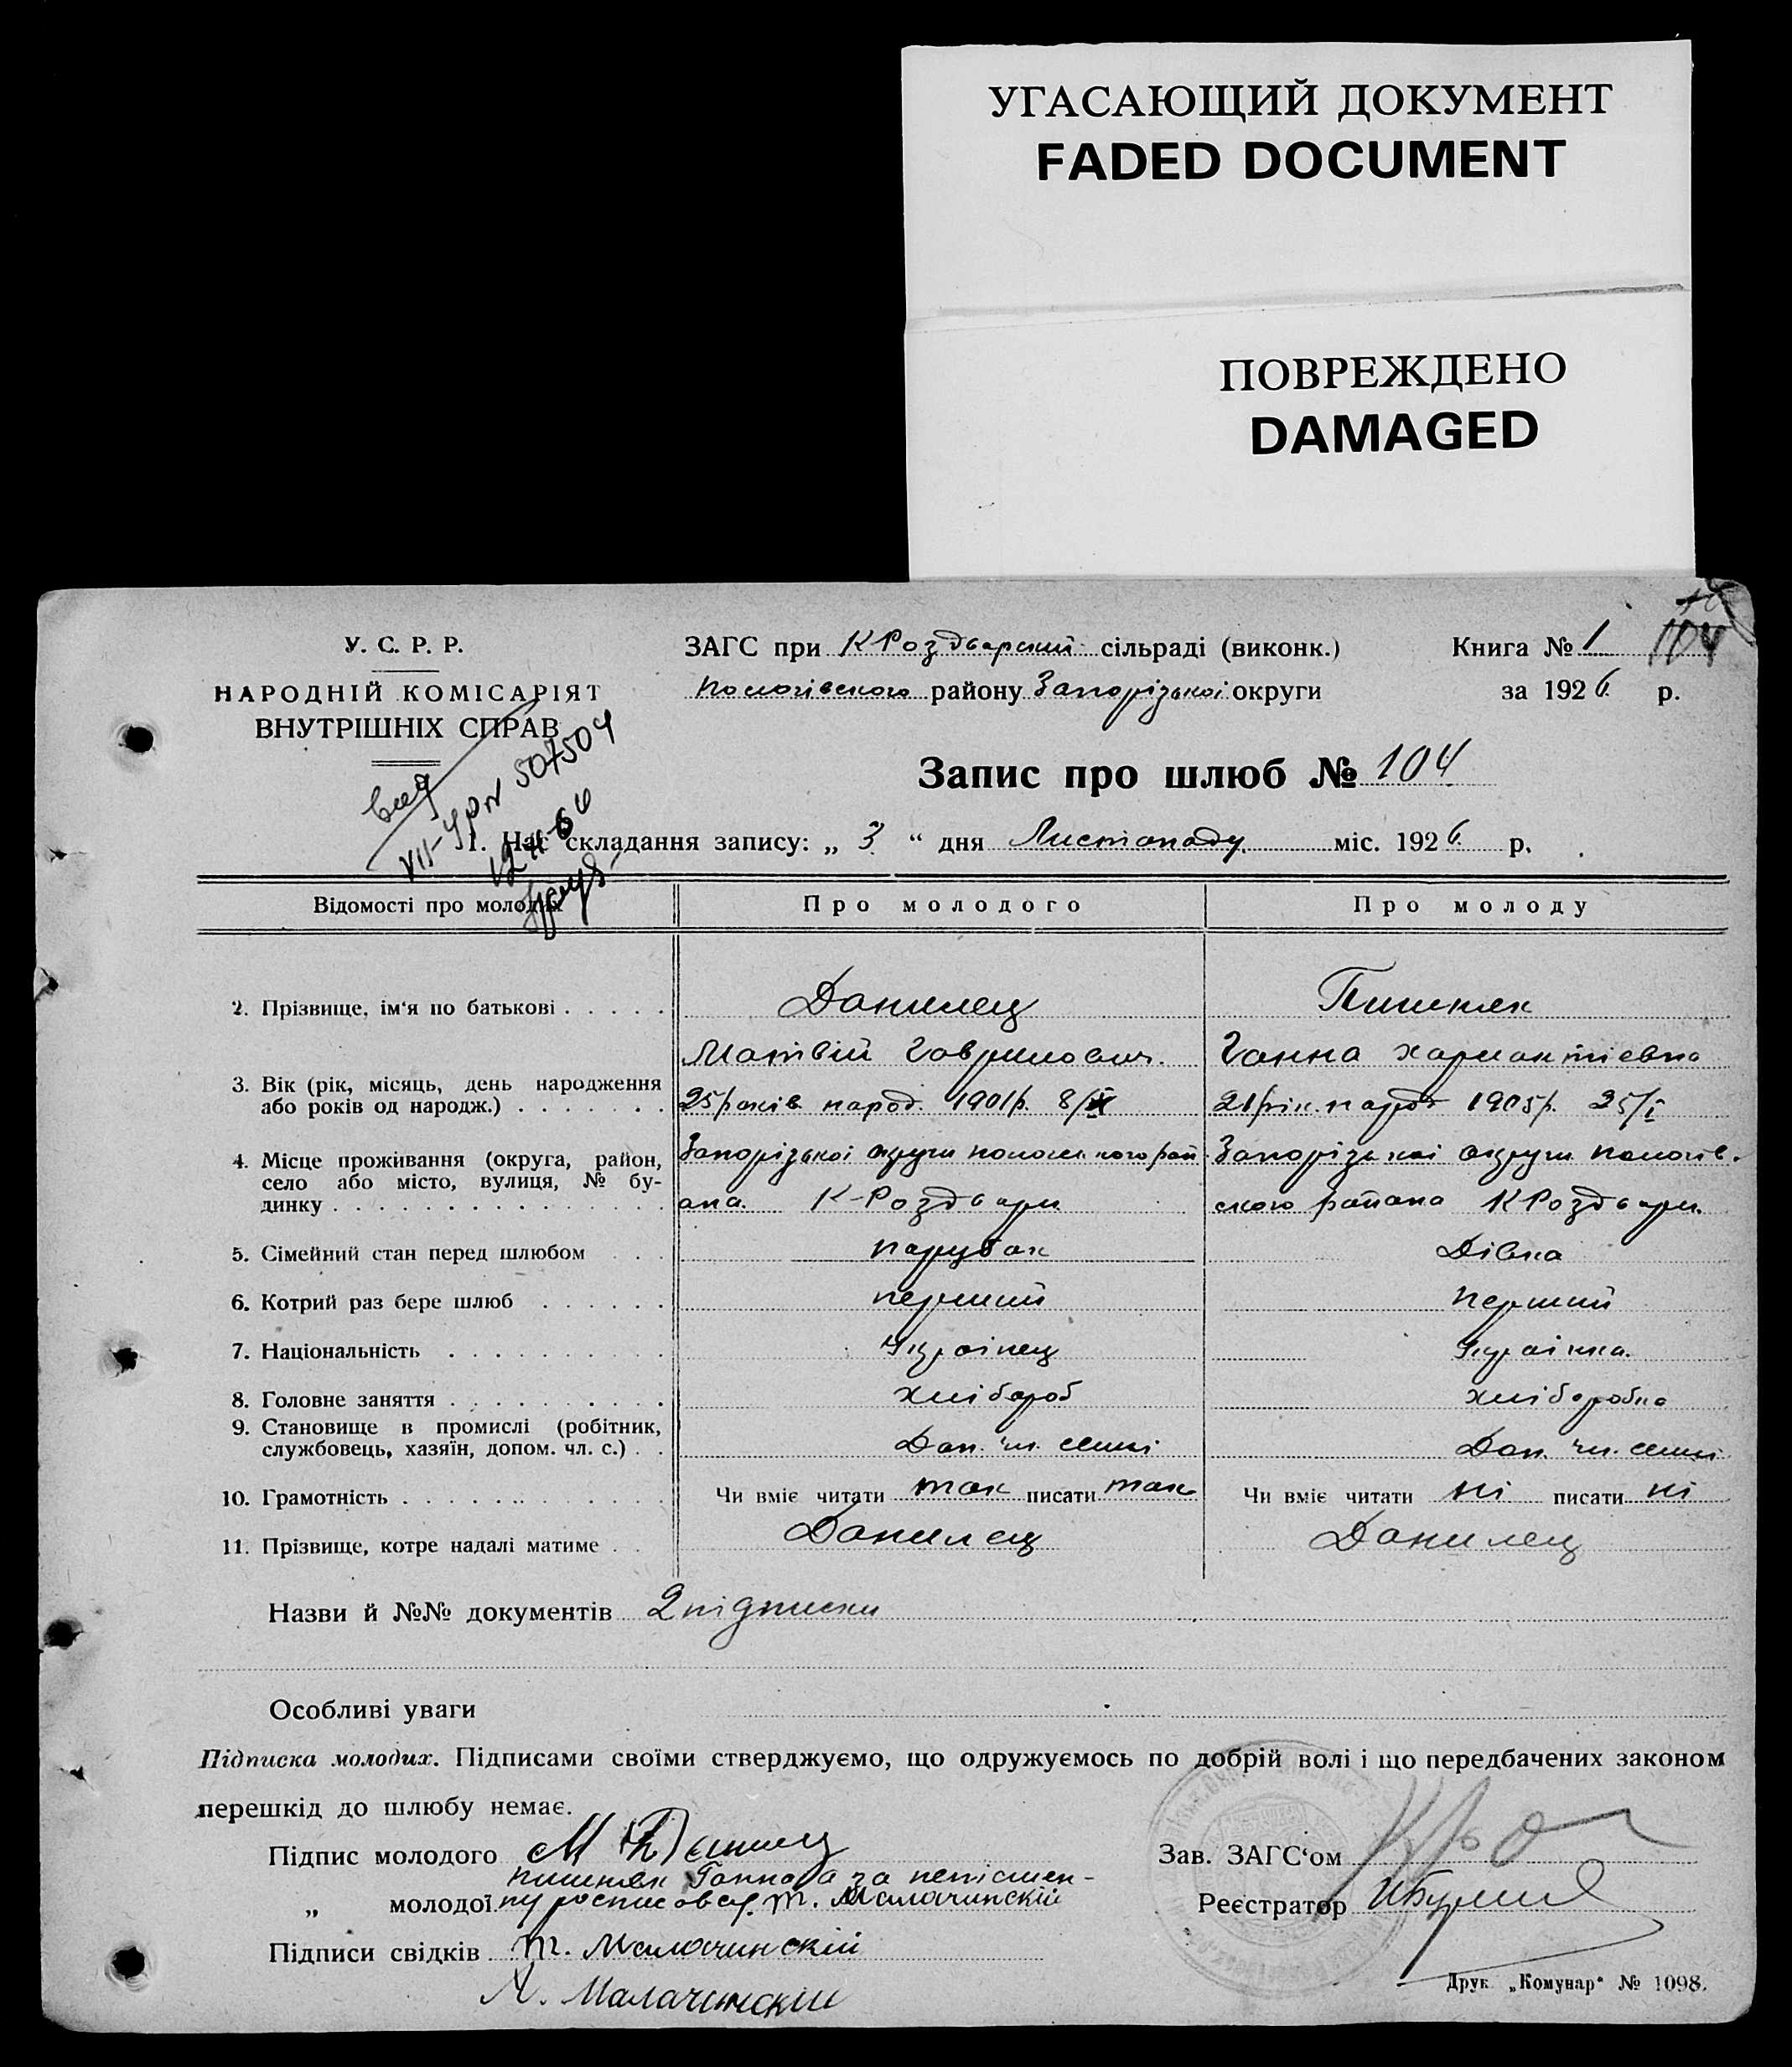 УГАСАЮЩИЙ ДОКУМЕНТ
FADED DOCUMENT
ПОВРЕЖДЕНО
DAMAGED
У. С. Р. Р.
НАРОДНІЙ КОМІСАРІЯТ
ВНУТРІШНІХ СПРАВ
ЗАГС при К Роздорский сільраді (виконк.)
Пологівского району Запорізькоі округи
Книга № 1 104
за 1926 р.
VII-УРN 507504
12 II 60
Запис про шлюб № 104
1. Час складання запису: „ 3 “ дня Листопаду міс. 1926 р.
Відомості про молодих Про молодого Про молоду
2. Прізвище, ім‘я по батькові Данилец Пишняк
Матвій Гаврилович. Ганна Харлантіевна
3. Вік (рік, місяць, день народження
або років од народж.) 25 років народ. 1901 р. 21 рік. народ 1905 р. 25/I
4. Місце проживання (округа, район,
село або місто, вулиця, № бу-
динку Запорізькоі округи рай
она. К-Роздори Запорізькоі округи пологів-
ского района К Роздори.
5. Сімейний стан перед шлюбом парубак Дівка
6. Котрий раз бере шлюб перший перший
7. Національність Украінец Украінка.
8. Головне заняття хлібороб хліборобка
9. Становище в промислі (робітник,
службовець, хазяїн, допом. чл. с.) Доп. чл. семьі Доп. чл. семьі
10. Грамотність Чи вміє читати так писати так Чи вміє читати ні писати ні
11. Прізвище, котре надалі матиме Данилец Данилец
Назви й №№ документів 2 підписки
Особливі уваги
Підписка молодих. Підписами своїми стверджуємо, що одружуємось по добрій волі і що передбачених законом
перешкід до шлюбу немає.
Підпис молодого М Данилец
Пишняк Ганна а за неписмен-
„ молодої ну росписовсь т. Малачинскій
Підписи свідків т. Малачинскій
Малачинский
Зав. ЗАГС‘ом
Реєстратор
Друк „Комунар“ № 1098.